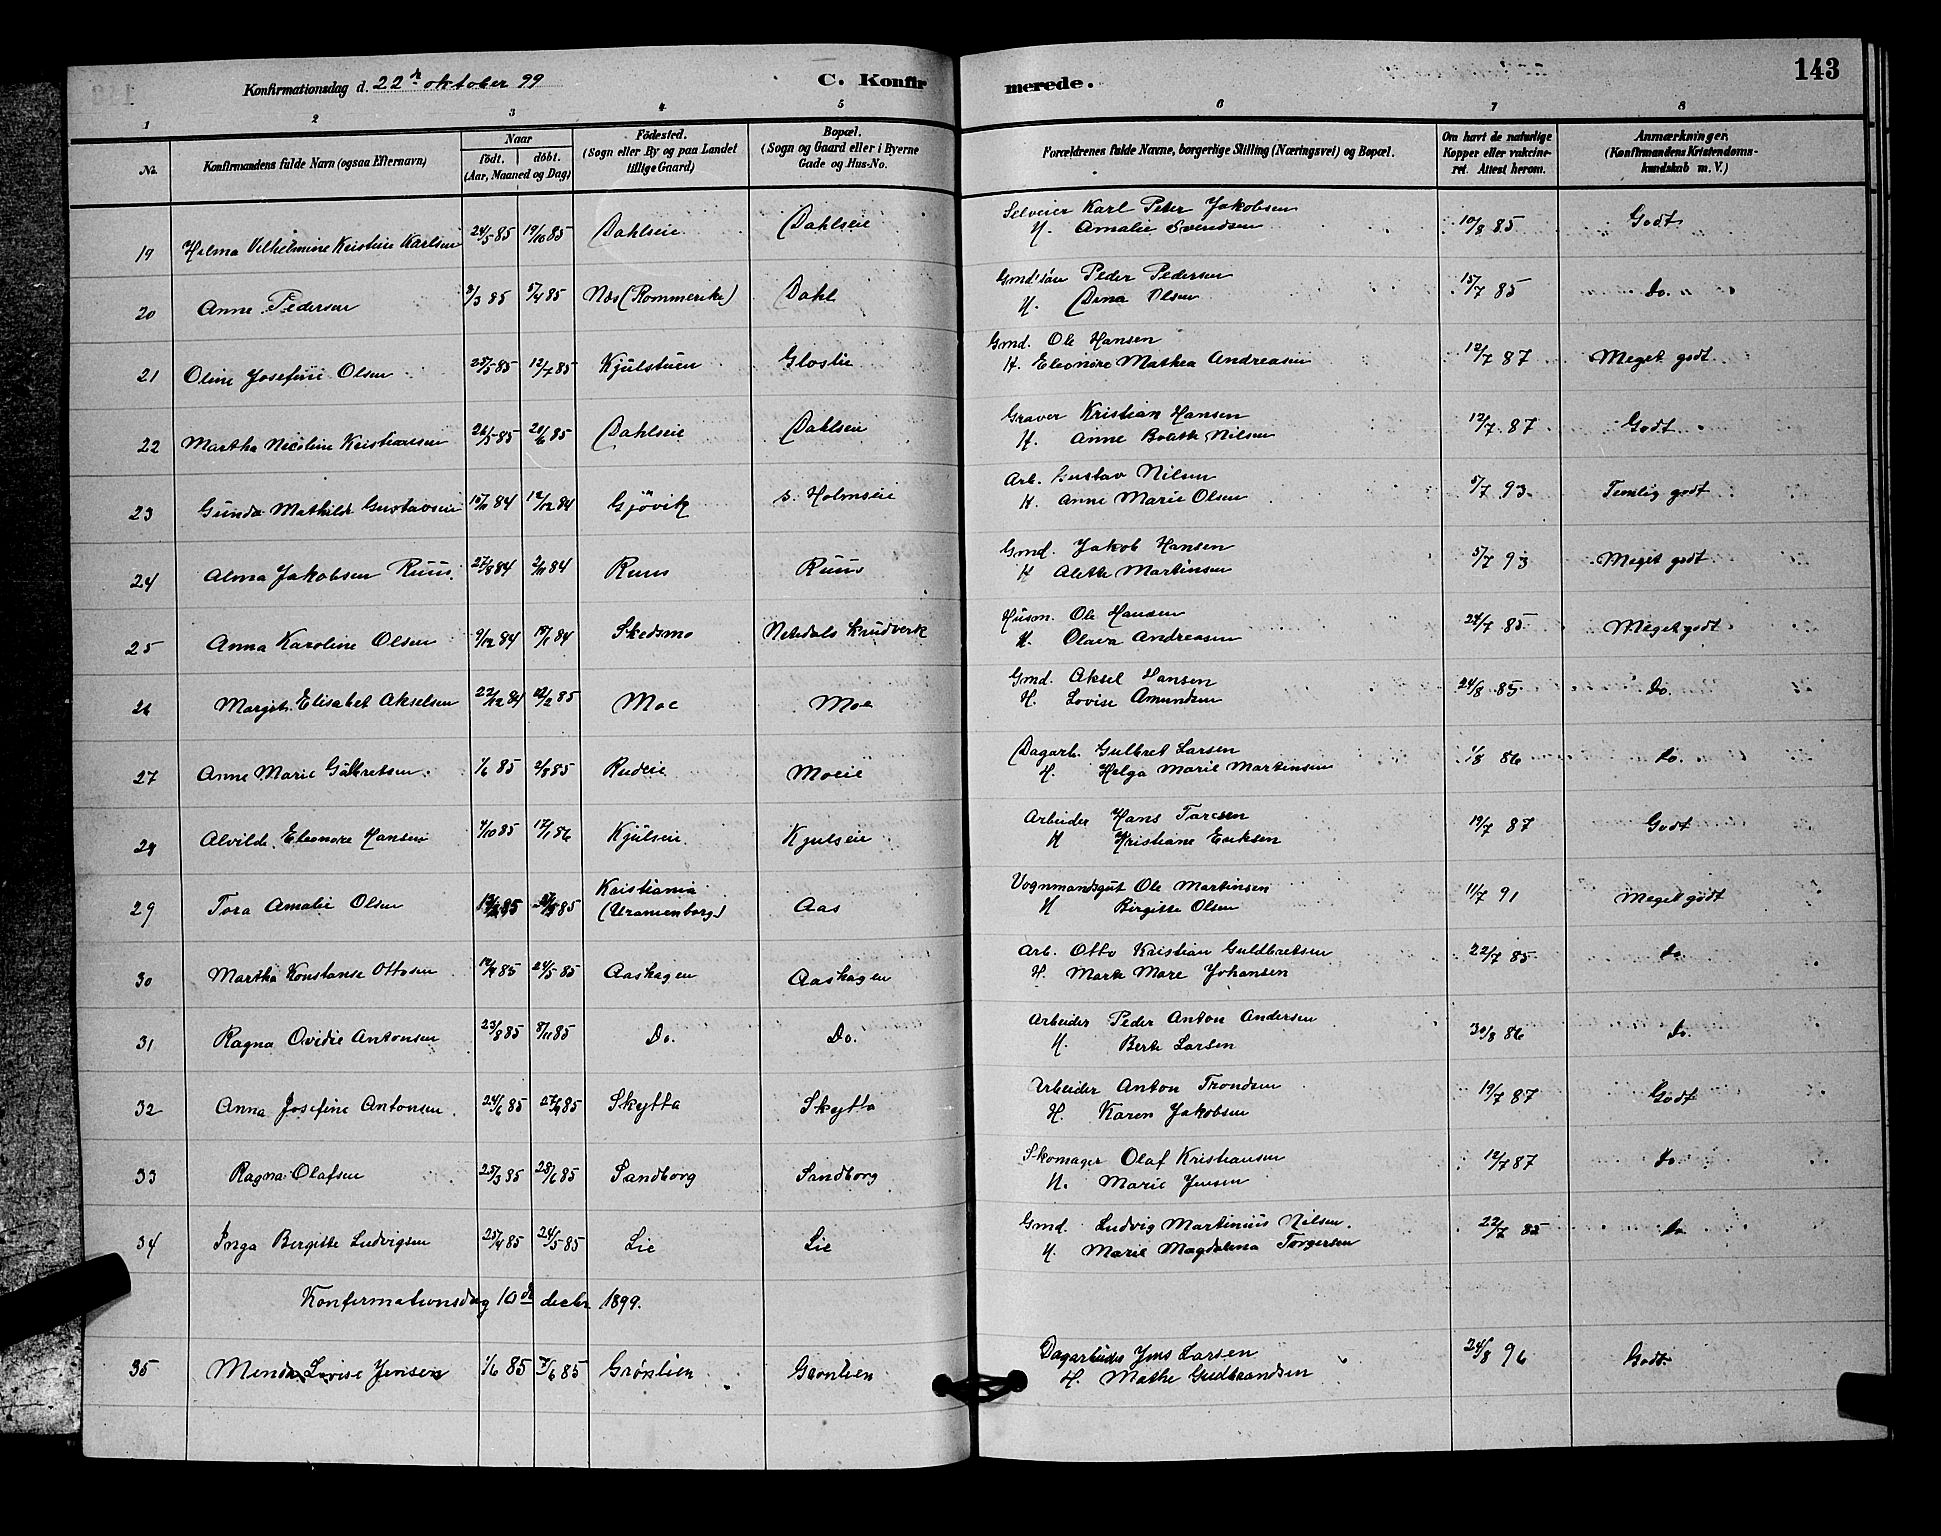 Konfirmationsdag d. 22de oktober 99 C. Konfirmerede. 143
1 2 3 4 5 6 7 8
No. Konfirmandens fulde Navn (ogsaa Efternavn) Naar født. døbt. (Aar, Maaned og Dag) Fødested. (Sogn eller By og paa Landet tillige Gaard) Bopæl. (Sogn og Gaard eller i Byerne Gade og Hus-No. Forældrenes fulde Navne, borgerlige Stilling (Næringsvei) og Bopæl. Om havt de naturlige Kopper eller vakcineret. Attest herom. Anmærkninger. (Konfirmandens Kristendomskundskab m. V.)
19 Helma Vilhelmine Kristine Karlsen 24/5 85 19/10 85 Dahlseie Dahlseie Selveier Karl Peter Jakobsen 10/8 85 Godt
H. Amalie Svendsen
20 Anne Pedersen 8/3 85 5/4 85 Næs (Rommerike) Dahl Gmd'søn Peder Pedersen 15/7 85 do.
H. Dina Olsen
21 Oline Josefine Olsen 25/5 85 12/7 85 Kjulstuen Gloslie Gmd. Ole Hansen 12/7 87 Meget godt
H. Eleonore Mathea Andreasen
22 Martha Nicoline Kristiansen 26/5 85 21/6 85 Dahlseie Dahlseie Graver Kristian Hansen 12/7 87 Godt
H. Anne Bolette Nilsen
23 Gunda Mathilde Gustavsen 15/11 84 12/12 84 Gjøvik s. Holmseie Arb. Gustav Nilsen 5/7 93 Temlig godt
H. Anne Marie Olsen
24 Alma Jakobsen Ruus. 27/8 84 2/11 84 Ruus Ruus Gmd. Jakob Hansen 5/7 93 Meget godt
H Alette Martinsen
25 Anna Karoline Olsen 9/12 84 84 Skedsmo Nitedals Krudverk Husm. Ole Hansen 24/7 85 Meget godt
H. Olava Andreasen
26 Margit Elisabet Akselsen 22/12 84 12/2 85 Moe Moe Gmd. Aksel Hansen 24/8 85 do.
H. Lovise Amundsen
27 Anne Marie Gulbretsen. 1/6 85 2/8 85 Rudeie Moeie Dagarb. Gulbret Larsen 1/8 86 do.
H. Helga Marie Martinsen
28 Alvilde Eleonore Hansen 7/10 85 17/1 86 Kjulseie. Kjulseie Arbeider Hans Toresen 19/7 87 Godt
H Kristiane Eriksen
29 Tora Amalie Olsen 85 85 Kristiania (Uranienborg) Aas Vognmandsgut Ole Martinsen 11/7 91 Meget godt
H Birgitte Olsen
30 Martha Konstanse Ottosen 12/4 85 24/5 85 Aashagen Aashagen Arb. Otto Kristian Guldbretsen 22/7 85 do
H. Marte Mare Johansen
31 Ragna Ovidie Antonsen 23/8 85 8/11 85 Do. Do. Arbeider Peder Anton Andersen 30/8 86 do.
H. Berte Larsen
32 Anna Josefine Antonsen. 24/6 85 27/9 85 Skytta Skytta Arbeider Anton Trondsen 19/7 87 Godt
H. Karen Jakobsen
33 Ragna Olafsen 25/3 85 28/6 85 Sandborg Sandborg Skomager Olaf Kristiansen 12/7 87 do
H. Marie Jensen
34 Inga Birgitte Ludvigsen 25/4 85 24/5 85 Lie Lie Gmd. Ludvig Martinius Nilsen. 22/7 85 do
H. Marie Magdalena Torgersen
Konfirmationsdag 10de decbr 1899.
35 Menda Lovise Jensen 1/6 85 7/6 85 Grønlien Grønlien Dagarbeider Jens Larsen 24/8 96 Godt
H. Mathe Gudbrandsen